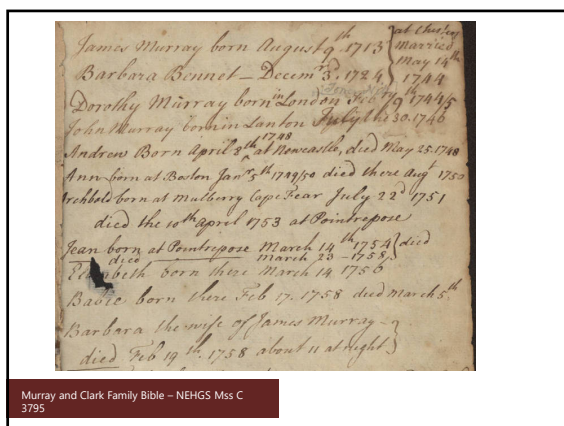 James Murray born August 9th 1713 } at Chesters
Barbara Bennet — Decemr 3d, 1724 } married May 14th 1744
Dorothy Murray born in London Feb ry 9th 1744/5
John Murray born in Lanton July the 30. 1746
Andrew Born April 8th 1748 at Newcastle, died May 25. 1748
Ann born at Boston Janr 5th 1749/50 died there Augt 1750
Archbold born at Mulberry Cape Fear July 22d 1751
died the 10th April 1753 at Pointrepose
Jean born at Pointrepose March 14th 1754 } died
died March 23 - 1758
Elizabeth born there March 14. 1756
Babie born there Feb 17. 1758 died March 5th
Barbara the wife of James Murray - }
died Feb 19th. 1758 about 11 at night }
Murray and Clark Family Bible – NEHGS Mss C
3795